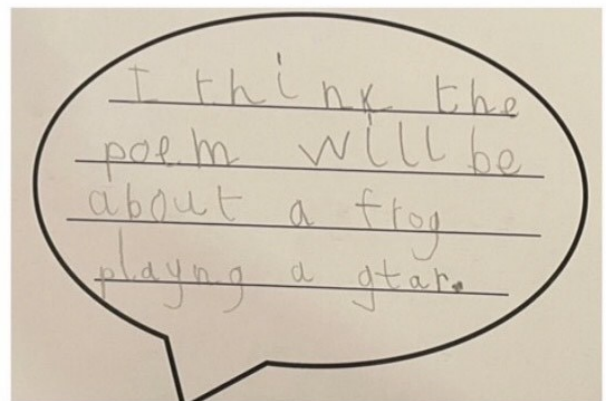 I think the
poem will be
about a frog
playng a gtar.